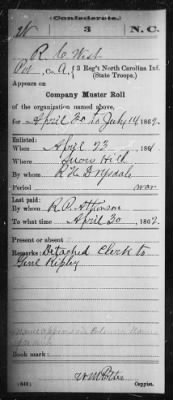 (Confederate.)
W 3 N.C.
R C West
Pvt, Co. A, 3 Reg't North Carolina Inf.
(State Troops.)
Appears on
Company Muster Roll
of the organization named above,
for April 30 to July 14, 1862.
Enlisted:
When April 23, 1861.
Where Hill
By whom R H Drysdale
Period war
Last paid:
By whom R. P. Atkinson
To what time April 30, 1862.
Present or absent
Remarks: Detached Clerk to
Genl Ripley
Book mark:
(642) Copyist.